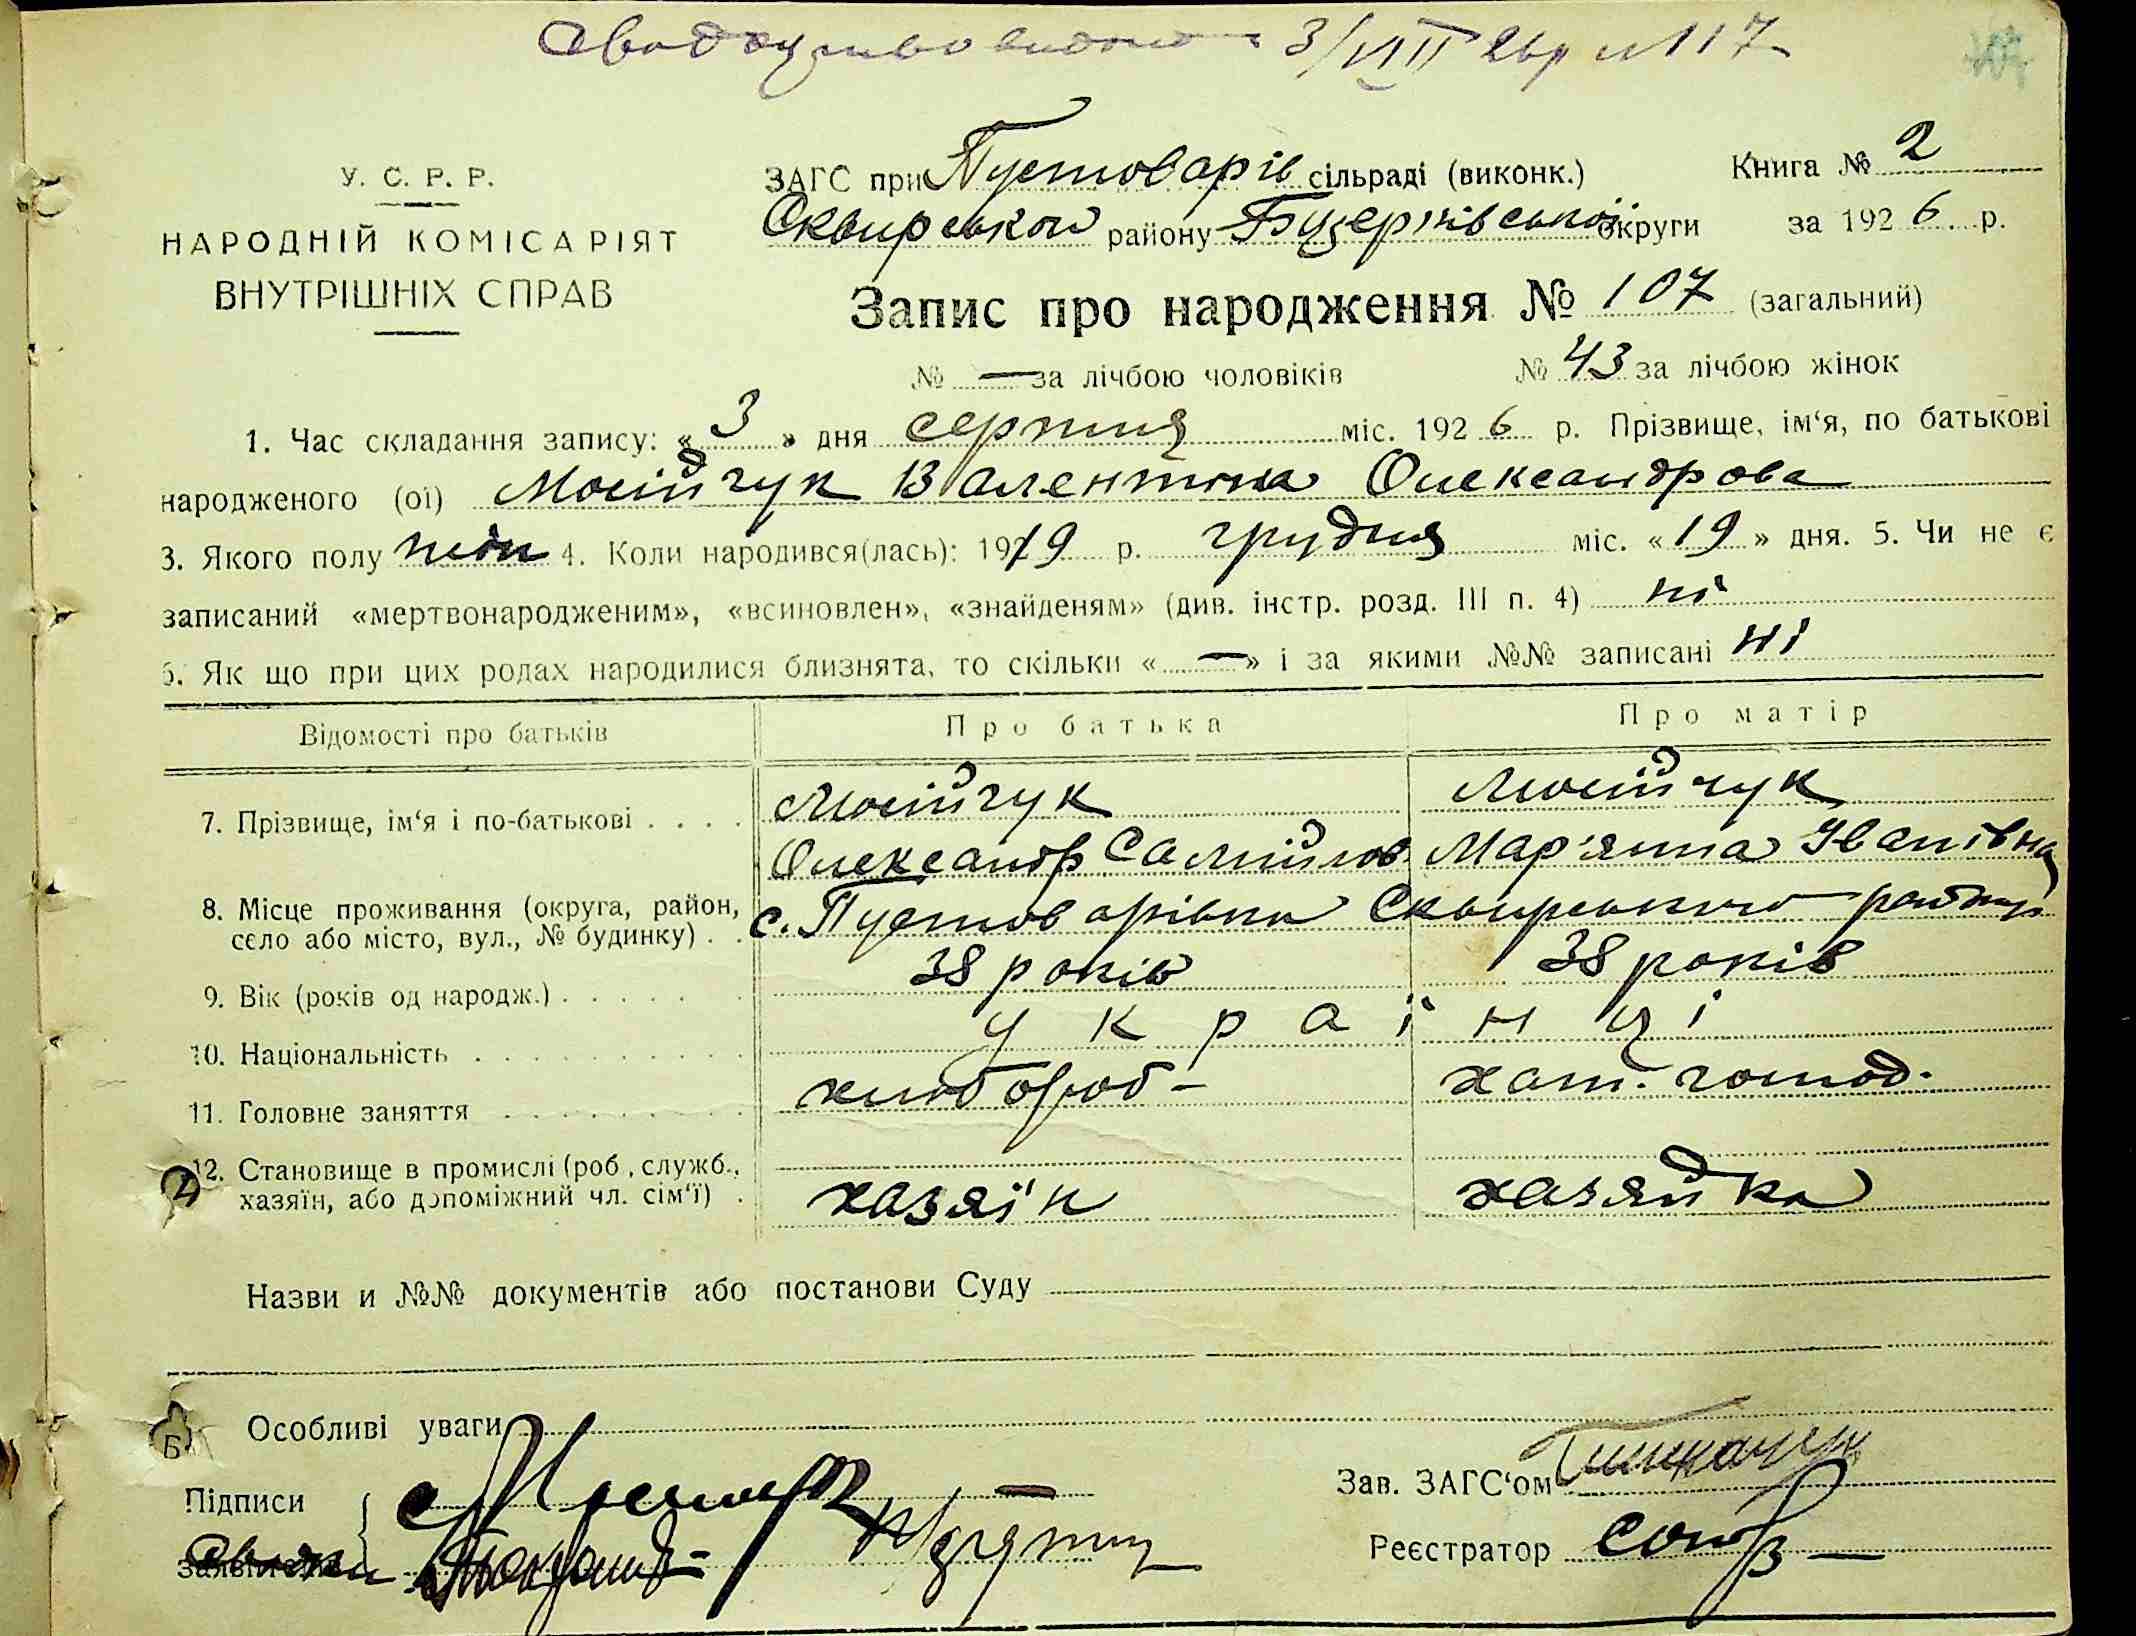 Свидоцтво видано 3/VIII 26 р №117
У. С. Р. Р.
НАРОДНІЙ КОМІСАРІЯТ
ВНУТРІШНІХ СПРАВ
ЗАГС при Пустоварів сільраді (виконк.) Книга № 2
Сквирського району Білоцерківської округи за 1926 р.
Запис про народження № 107 (загальний)
№ — за лічбою чоловіків № 43 за лічбою жінок
1. Час складання запису: « 3 » дня серпня міс. 1926 р. Прізвище, ім‘я, по батькові
народженого (ої) Мосійчук Валентина Олександрова
3. Якого полу жін 4. Коли народився(лась): 1919 р. грудня міс. « 19 » дня. 5. Чи не є
записаний «мертвонародженим», «всиновлен», «знайденям» (див. інстр. розд. III п. 4) ні
6. Як що при цих родах народилися близнята, то скільки « — » і за якими №№ записані ні
Відомості про батьків Про батька Про матір
7. Прізвище, ім‘я і по-батькові . . . . Мосійчук Мосійчук
Олександр Самійлов. Мар'яна Іванівна
8. Місце проживання (округа, район, с. Пустоварівка Сквирського району
село або місто, вул., № будинку) . .
9. Вік (років од народж.) . . . . . . 38 років 38 років
10. Національність . . . . . . . . . українці
11. Головне заняття . . . . . . . . хлібороб- хат. господ.
12. Становище в промислі (роб., служб.,
хазяїн, або допоміжний чл. сім‘ї) . хазяїн хазяйка
Назви и №№ документів або постанови Суду
Особливі уваги
Б
Підписи
Зав. ЗАГС‘ом
Реєстратор